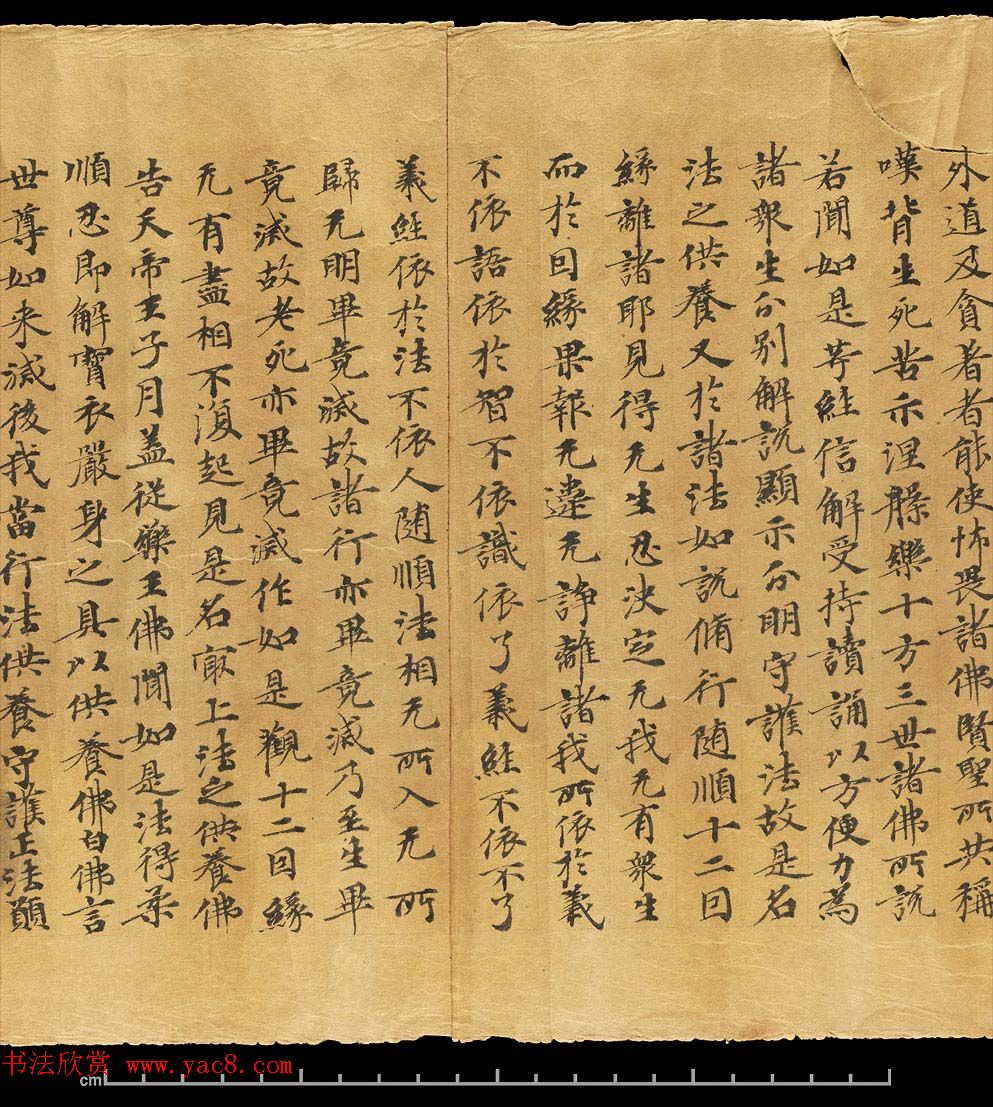 外道及貪者者能使怖畏諸佛賢聖所共稱
嘆背生死苦示涅脖樂十方三世諸佛所說
若聞如是等經信解受持讀誦以方便力為
諸衆生分別解說顯示分明守護法故是名
法之供養又於諸法如說脩行随順十二因
緣離諸耶見得无生忍決定无我无有衆生
而於因緣果報无違无諍離諸我所依於義
不依語依於智不依識依了義經不依不了
義經依於法不依人随順法相无所入无所
歸无明畢竟滅故諸行亦畢竟滅乃至生畢
竟滅故老死亦畢竟滅作如是觀十二因緣
无有盡相不復起見是名冣上法之供養佛
告天帝王子月盖從藥王佛聞如是法得柔
順忍即解寶衣嚴身之具以供養佛白佛言
世尊如来滅後我當行法供養守護正法願
书法欣赏 www.yac8.com
cm